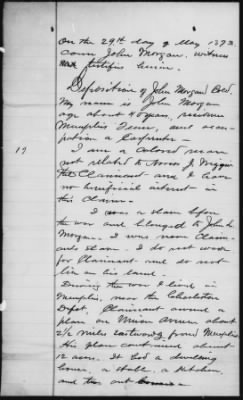 On the 29th day of May 1873.
came John Morgan, witness
and testifies herein.
Deposition of John Morgan Cold.
My name is John Morgan
age about 40 years, residence
Memphis Tenn, and occu-
pation a Carpenter
17
I am a colored man
not related to
the Claimant and I have
no beneficial interest in
this Claim.
I was a slave before
the war and belonged to John L.
Morgan. I was never Claim-
ants slave. I do not work
for Claimant and do not
live on his land.
During the war I lived in
Memphis, near the Charleston
Depot, Claimant owned a
place on Union Avenue about
2½ miles Eastwardly from Memphis
His place contained about
12 acres. It had a dwelling
house, a stable, a kitchen,
and this out